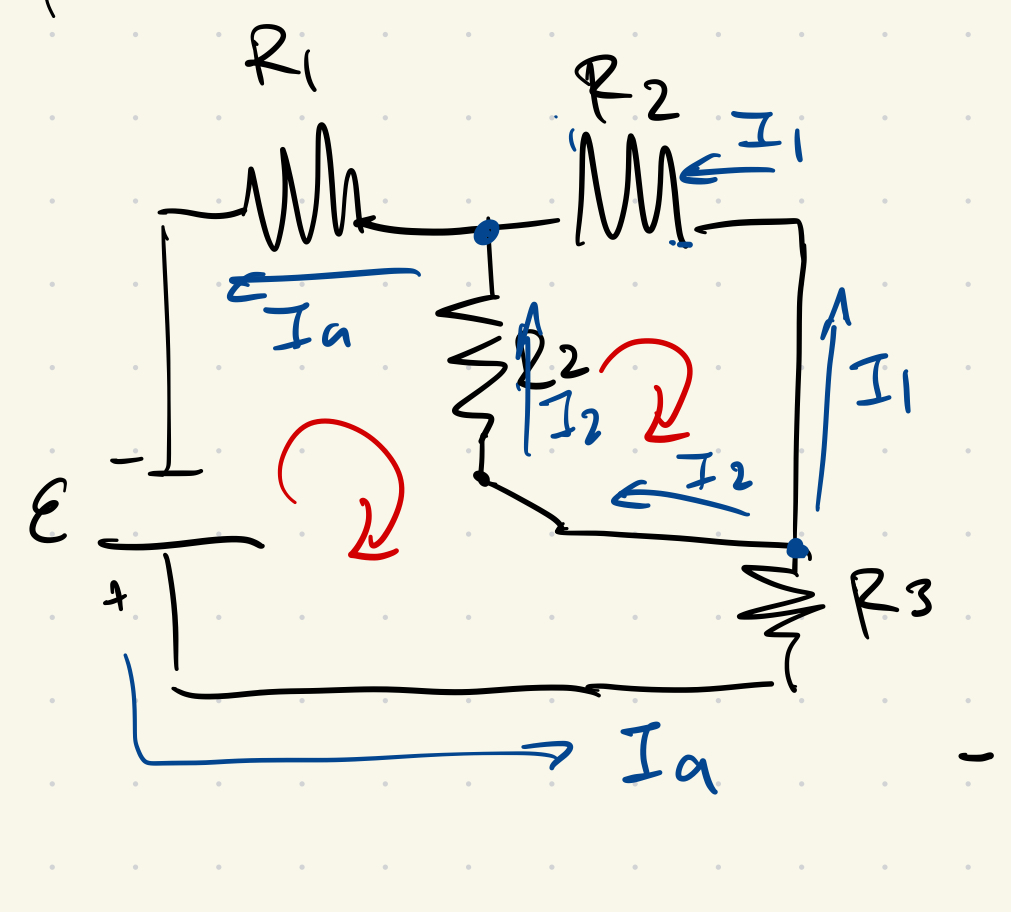 R1
R2
I1
Ia
R2
I2
I1
I2
ε
−
+
R3
Ia
-